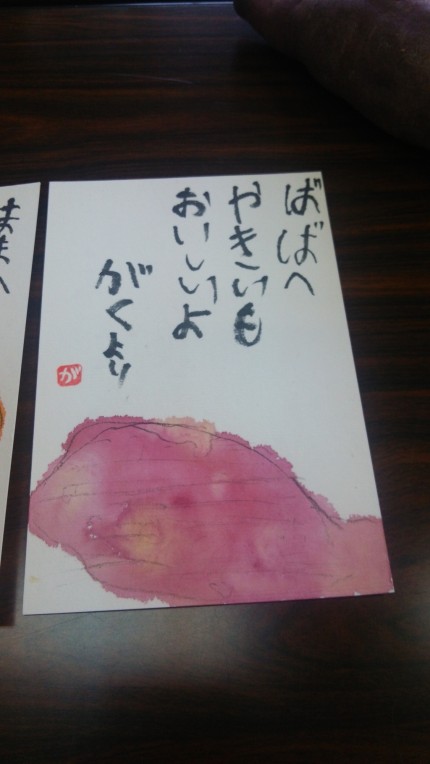 ばばへ
やきいも
おいしいよ
がくより
が
ままへ